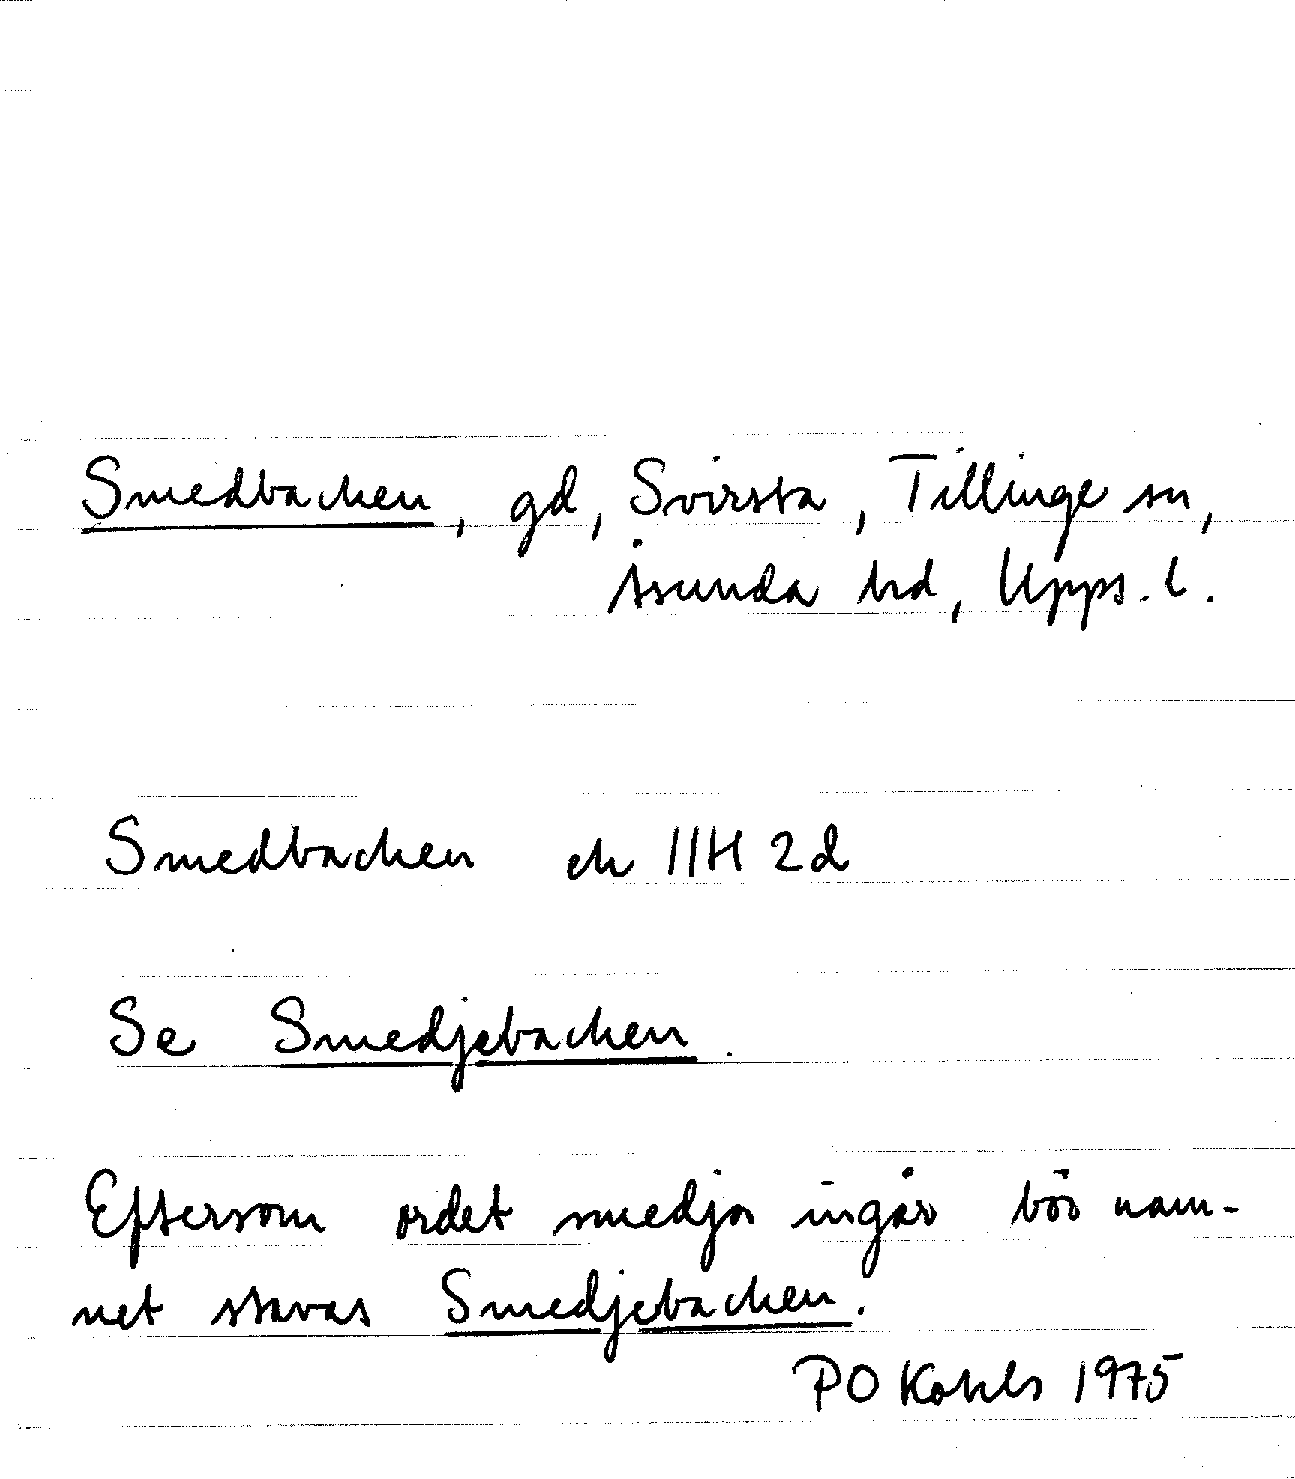 Smedbacken, gd, Svirsta, Tillinge sn,
Åsunda hd, Upps. l.
Smedbacken ek 11H 2d
Se Smedjebacken.
Eftersom ordet smedja ingår bör nam-
net stavas Smedjebacken.
PO Kohls 1975